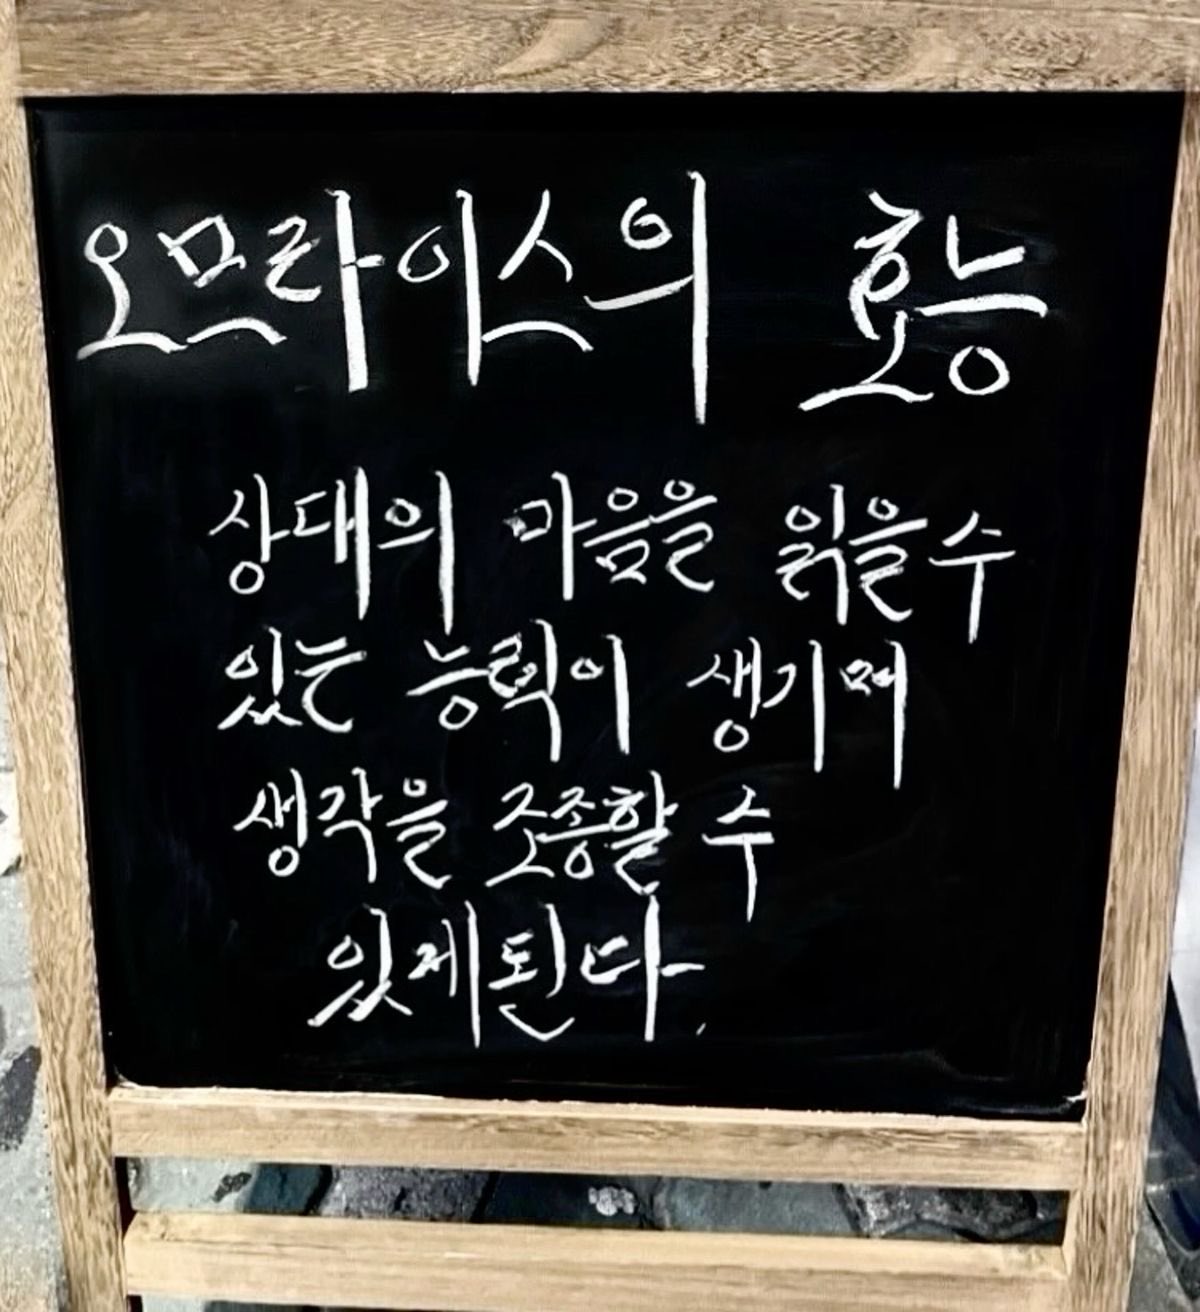 오므라이스의 효능
상대의 마음을 읽을수
있는 능력이 생기며
생각을 조종할 수
있게된다.